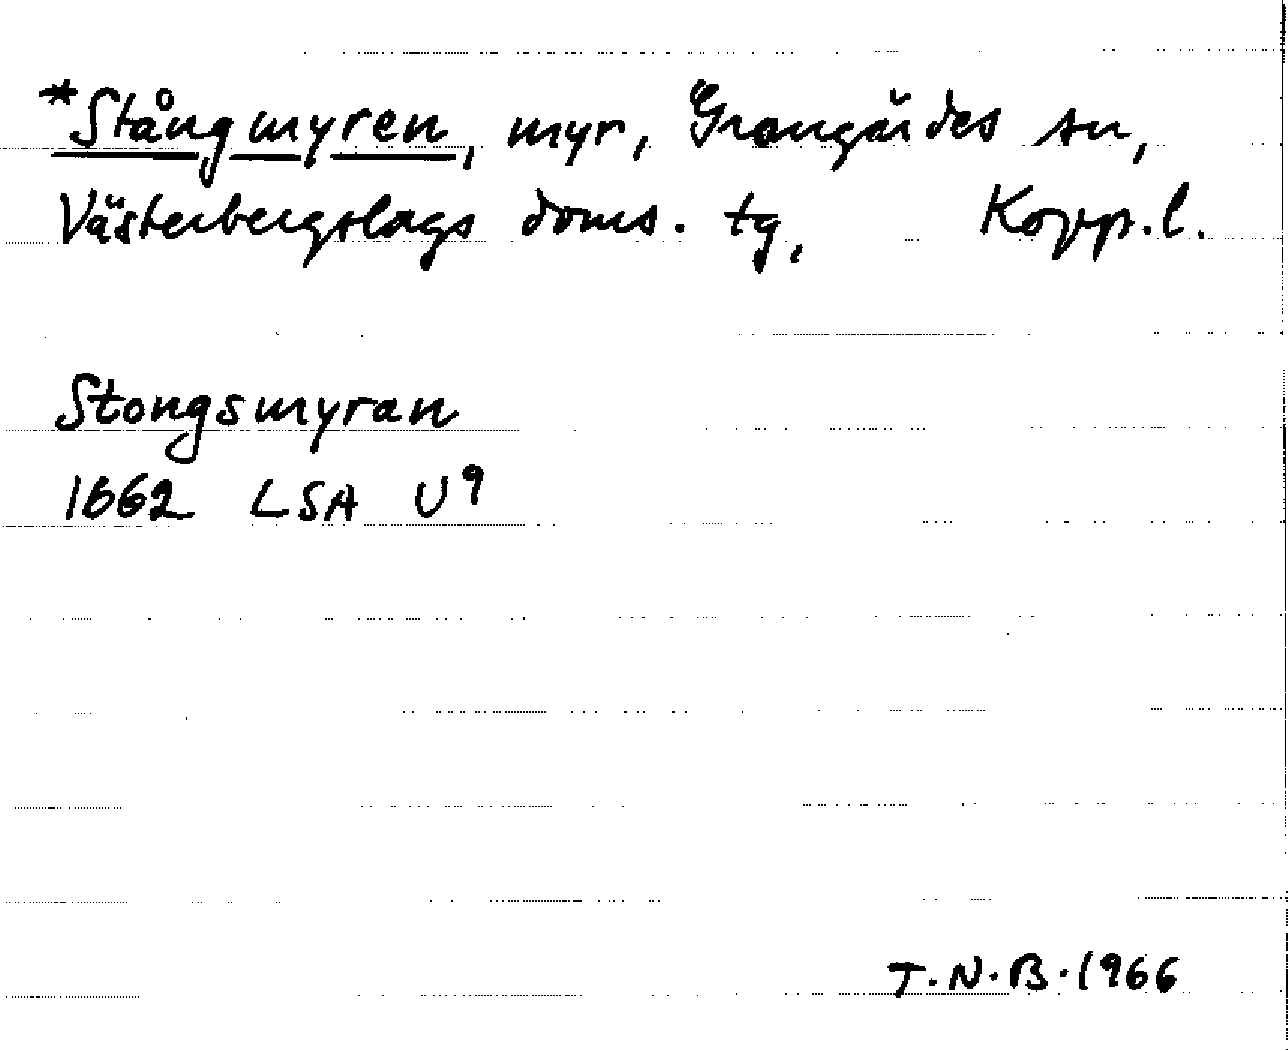 *Stångmyren, myr, Grangärdes sn,
Västerbergslags doms. tg, Kopp.l.
Stongsmyran
1662 LSA U9
T.N.B. 1966